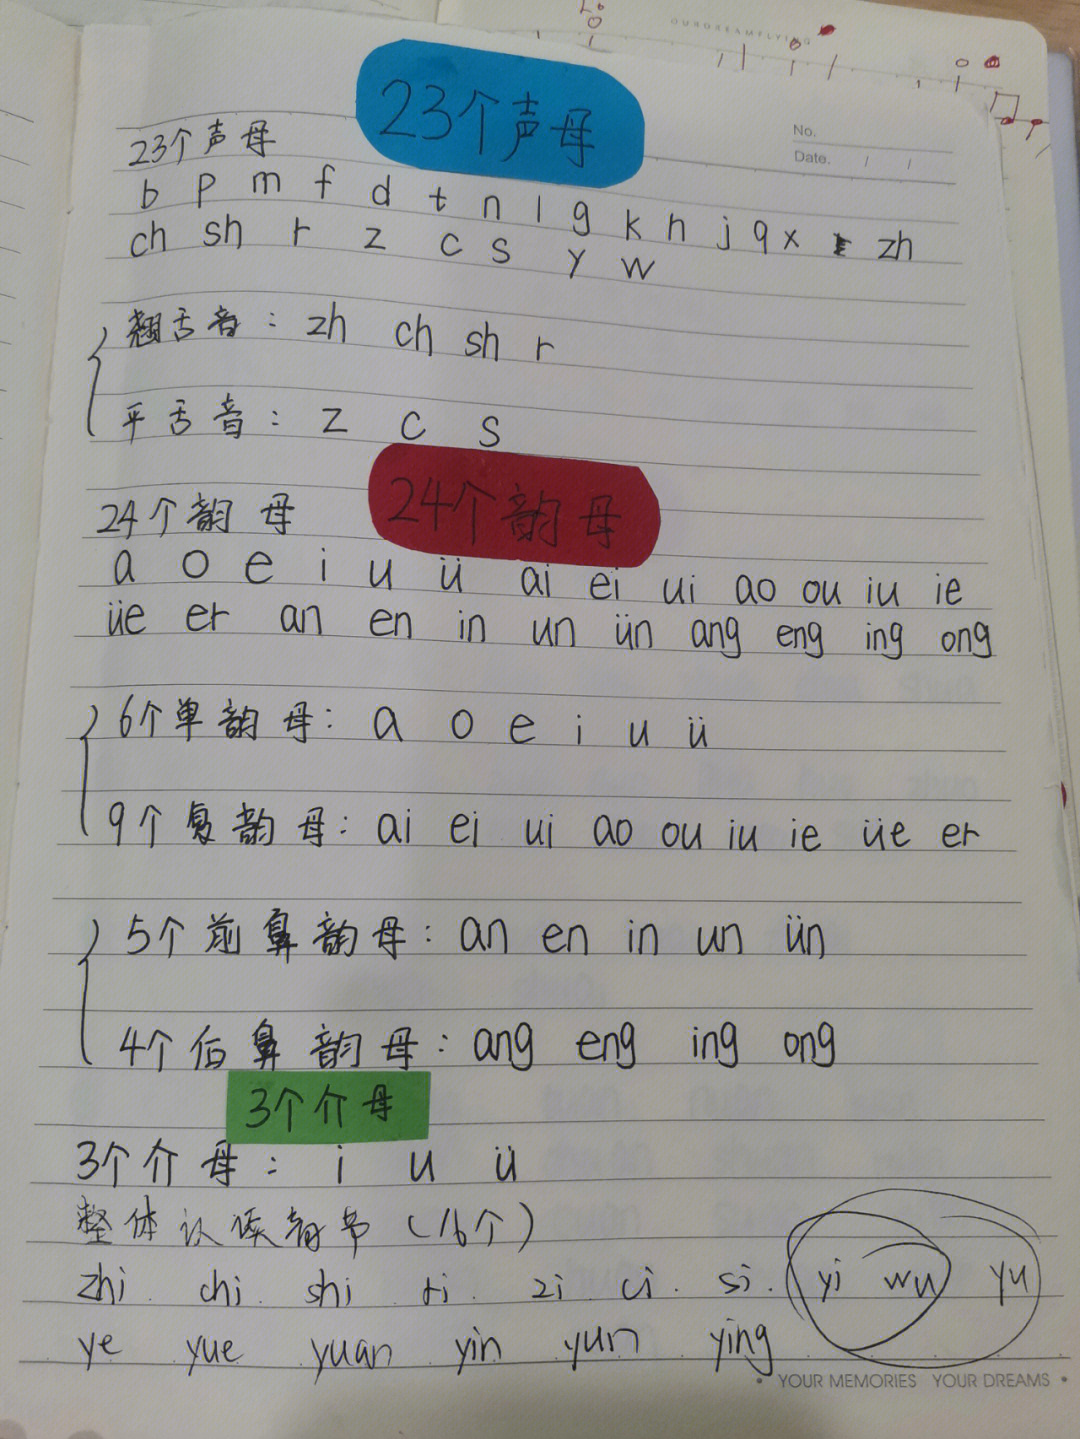 OURDREAMFLYING
23个声母
No.
Date. / /
23个声母
b p m f d t n l g k h j q x zh
ch sh r z c s y w
翘舌音: zh ch sh r
平舌音: z c s
24个韵母
24个韵母
a o e i u ü ai ei ui ao ou iu ie
üe er an en in un ün ang eng ing ong
6个单韵母: a o e i u ü
9个复韵母: ai ei ui ao ou iu ie üe er
5个前鼻韵母: an en in un ün
4个后鼻韵母: ang eng ing ong
3个介母
3个介母: i u ü
整体认读音节(16个)
zhi. chi. shi ri. zi ci. si. yi wu yu
ye yue yuan yin yun ying
• YOUR MEMORIES YOUR DREAMS •